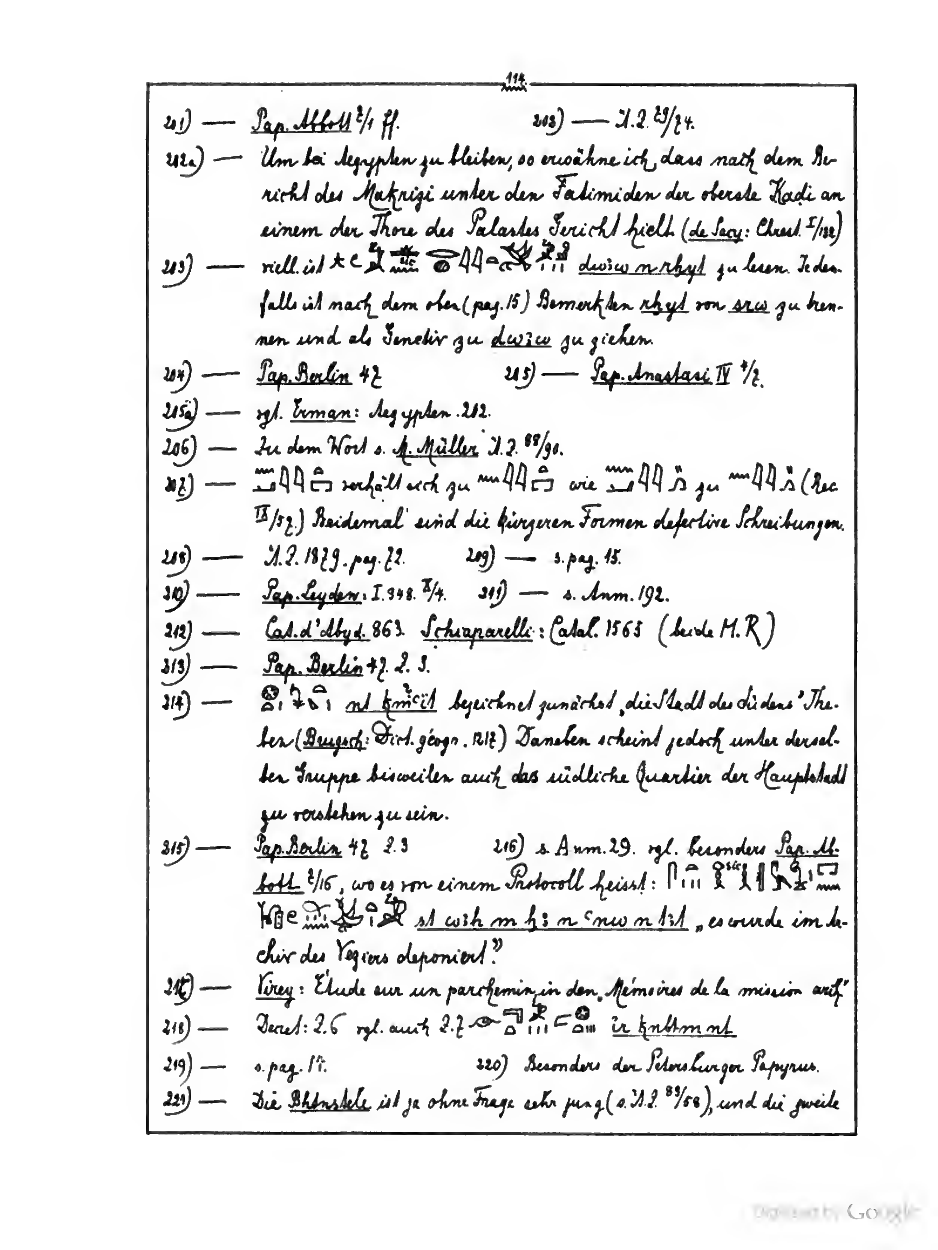 114.
201) — Pap. Abbott 7/1 ff. 202) — Ä.Z. 79/74.
202a) — Um bei Aegypten zu bleiben, so erwähne ich, dass nach dem Be-
richt des Makrizi unter den Fatimiden der oberste Kadi an
einem der Thore des Palastes Gericht hielt (de Sacy: Chrest. I/132)
203) — viell. ist dwȝw n rhyt zu lesen. Jeden-
falls ist nach dem oben (pag. 15) Bemerkten rhyt von srw zu tren-
nen und als Genetiv zu dwȝw zu ziehen.
204) — Pap. Berlin 47 205) — Pap. Anastasi IV 4/7.
205a) — vgl. Erman: Aegypten. 202.
206) — Zu dem Wort s. M. Müller Ä.Z. 88/90.
207) — verhält sich zu wie zu (Rec.
IX/57.) Beidemal sind die kürzeren Formen defective Schreibungen.
208) — Ä.Z. 1879. pag. 72. 209) — s. pag. 15.
210) — Pap. Leyden: I. 348. X/4. 211) — s. Anm. 192.
212) — Cat. d'Abyd. 863. Schiaparelli: Catal. 1565 (beide M.R)
213) — Pap. Berlin 47. Z. 3.
214) — nt bezeichnet zunächst „die Stadt des Südens" The-
ben (Brugsch: Dict. géogr. 1217) Daneben scheint jedoch unter dersel-
ben Gruppe bisweilen auch das südliche Quartier der Hauptstadt
zu verstehen zu sein.
215) — Pap. Berlin 47 Z. 3 216) s. Anm. 29. vgl. besonders Pap. Ab-
bott 7/16, wo es von einem Protocoll heisst: sic
st wȝh m hȝ n n tȝt „es wurde im Ar-
chiv des Veziers deponiert."
217) — Virey: Étude sur un parchemin, in den „Mémoires de la mission arch"
218) — Decret: Z. 6 vgl. auch Z. 7 ir knbtm nt
219) — s. pag. 220) Besonders der Petersburger Papyrus.
221) — Die Bhtnstele ist ja ohne Frage sehr jung (s. Ä.Z. 83/58), und die zweite
Digitized by Google